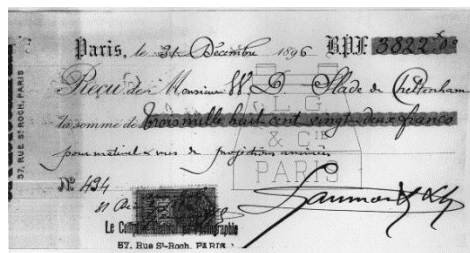 Paris, le 31 Décembre 1896 BPF 3822 x 0c
Reçu de Monsieur W. D. Slade de Cheltenham
la somme de trois mille huit cent vingt-deux francs
pour matériel & vues de projections animées
L. G.
& CIE
PARIS
Nº 494
31
Gaumont & Cie
Le Comptoir Général de Photographie
57, Rue St-Roch, PARIS
57, RUE ST ROCH, PARIS